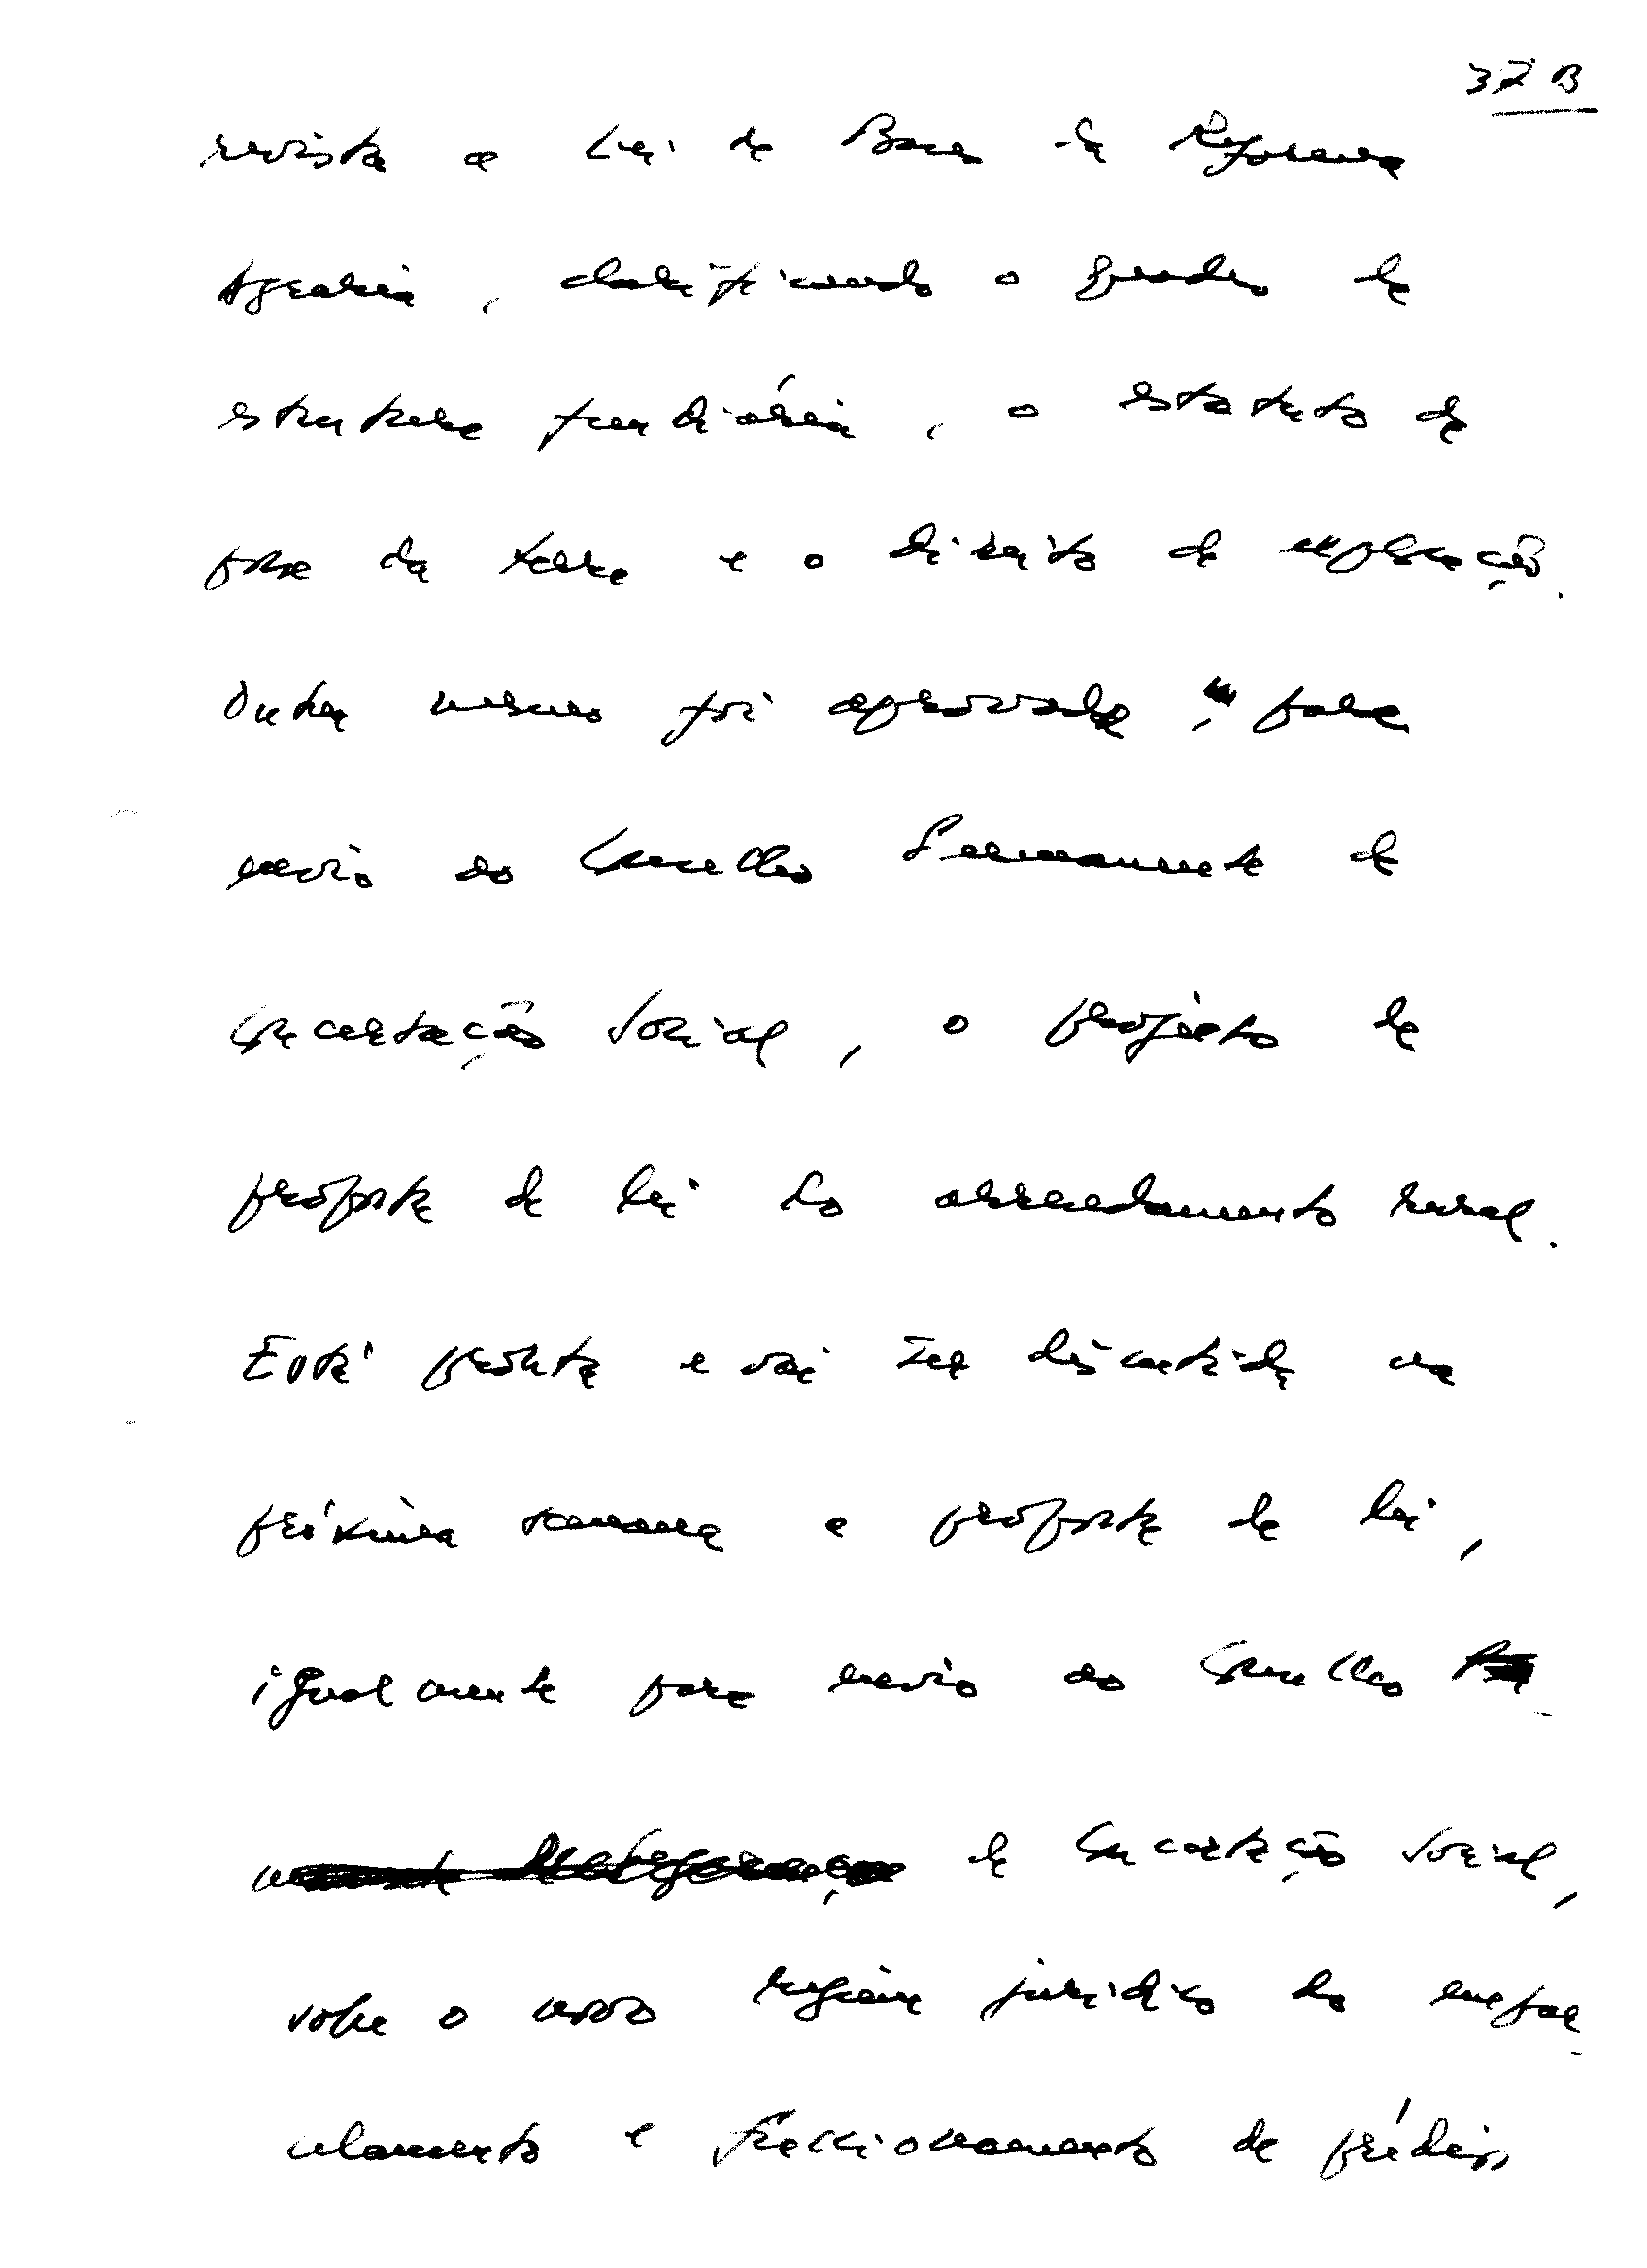 37 B
revista a Lei de Bases da Reforma
Agrária, clarificando o quadro da
estrutura fundiária, o estatuto da
posse da terra e o direito de exploração.
Ontem mesmo foi aprovado, para
envio ao Conselho Permanente de
Concertação Social, o projecto de
proposta de lei do arrendamento rural.
Está pronta e vai ser discutida na
próxima semana a proposta de lei,
igualmente para envio ao Conselho
de Concertação Social,
sobre o novo regime jurídico do empar-
celamento e fraccionamento de prédios